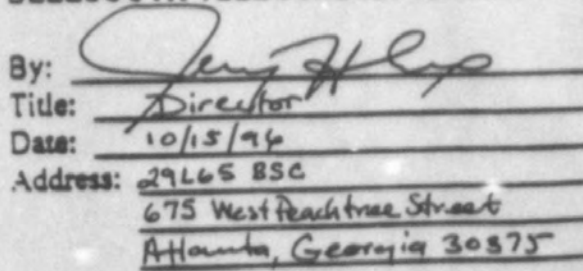 By:
Title: Director
Date: 10/15/96
Address: 29L65 BSC
675 West Peachtree Street
Atlanta, Georgia 30375